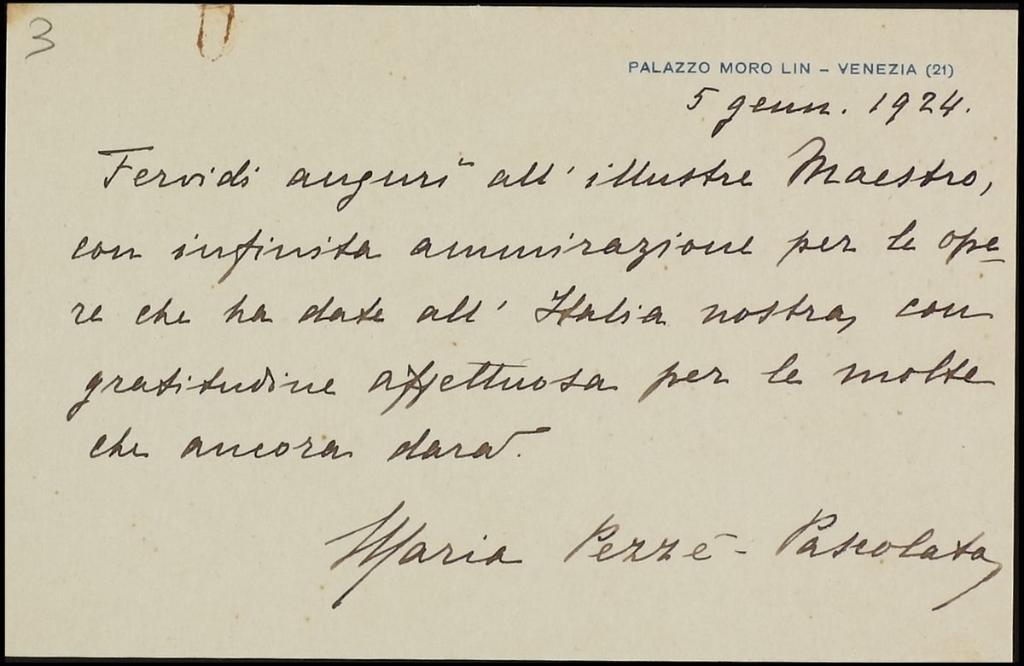 3
PALAZZO MORO LIN – VENEZIA (21)
5 genn. 1924.
Fervidi auguri all' illustre Maestro,
con infinita ammirazione per le ope=
re che ha date all' Italia nostra, con
gratitudine affettuosa per le molte
che ancora darà.
Maria Pezzé-Pascolato